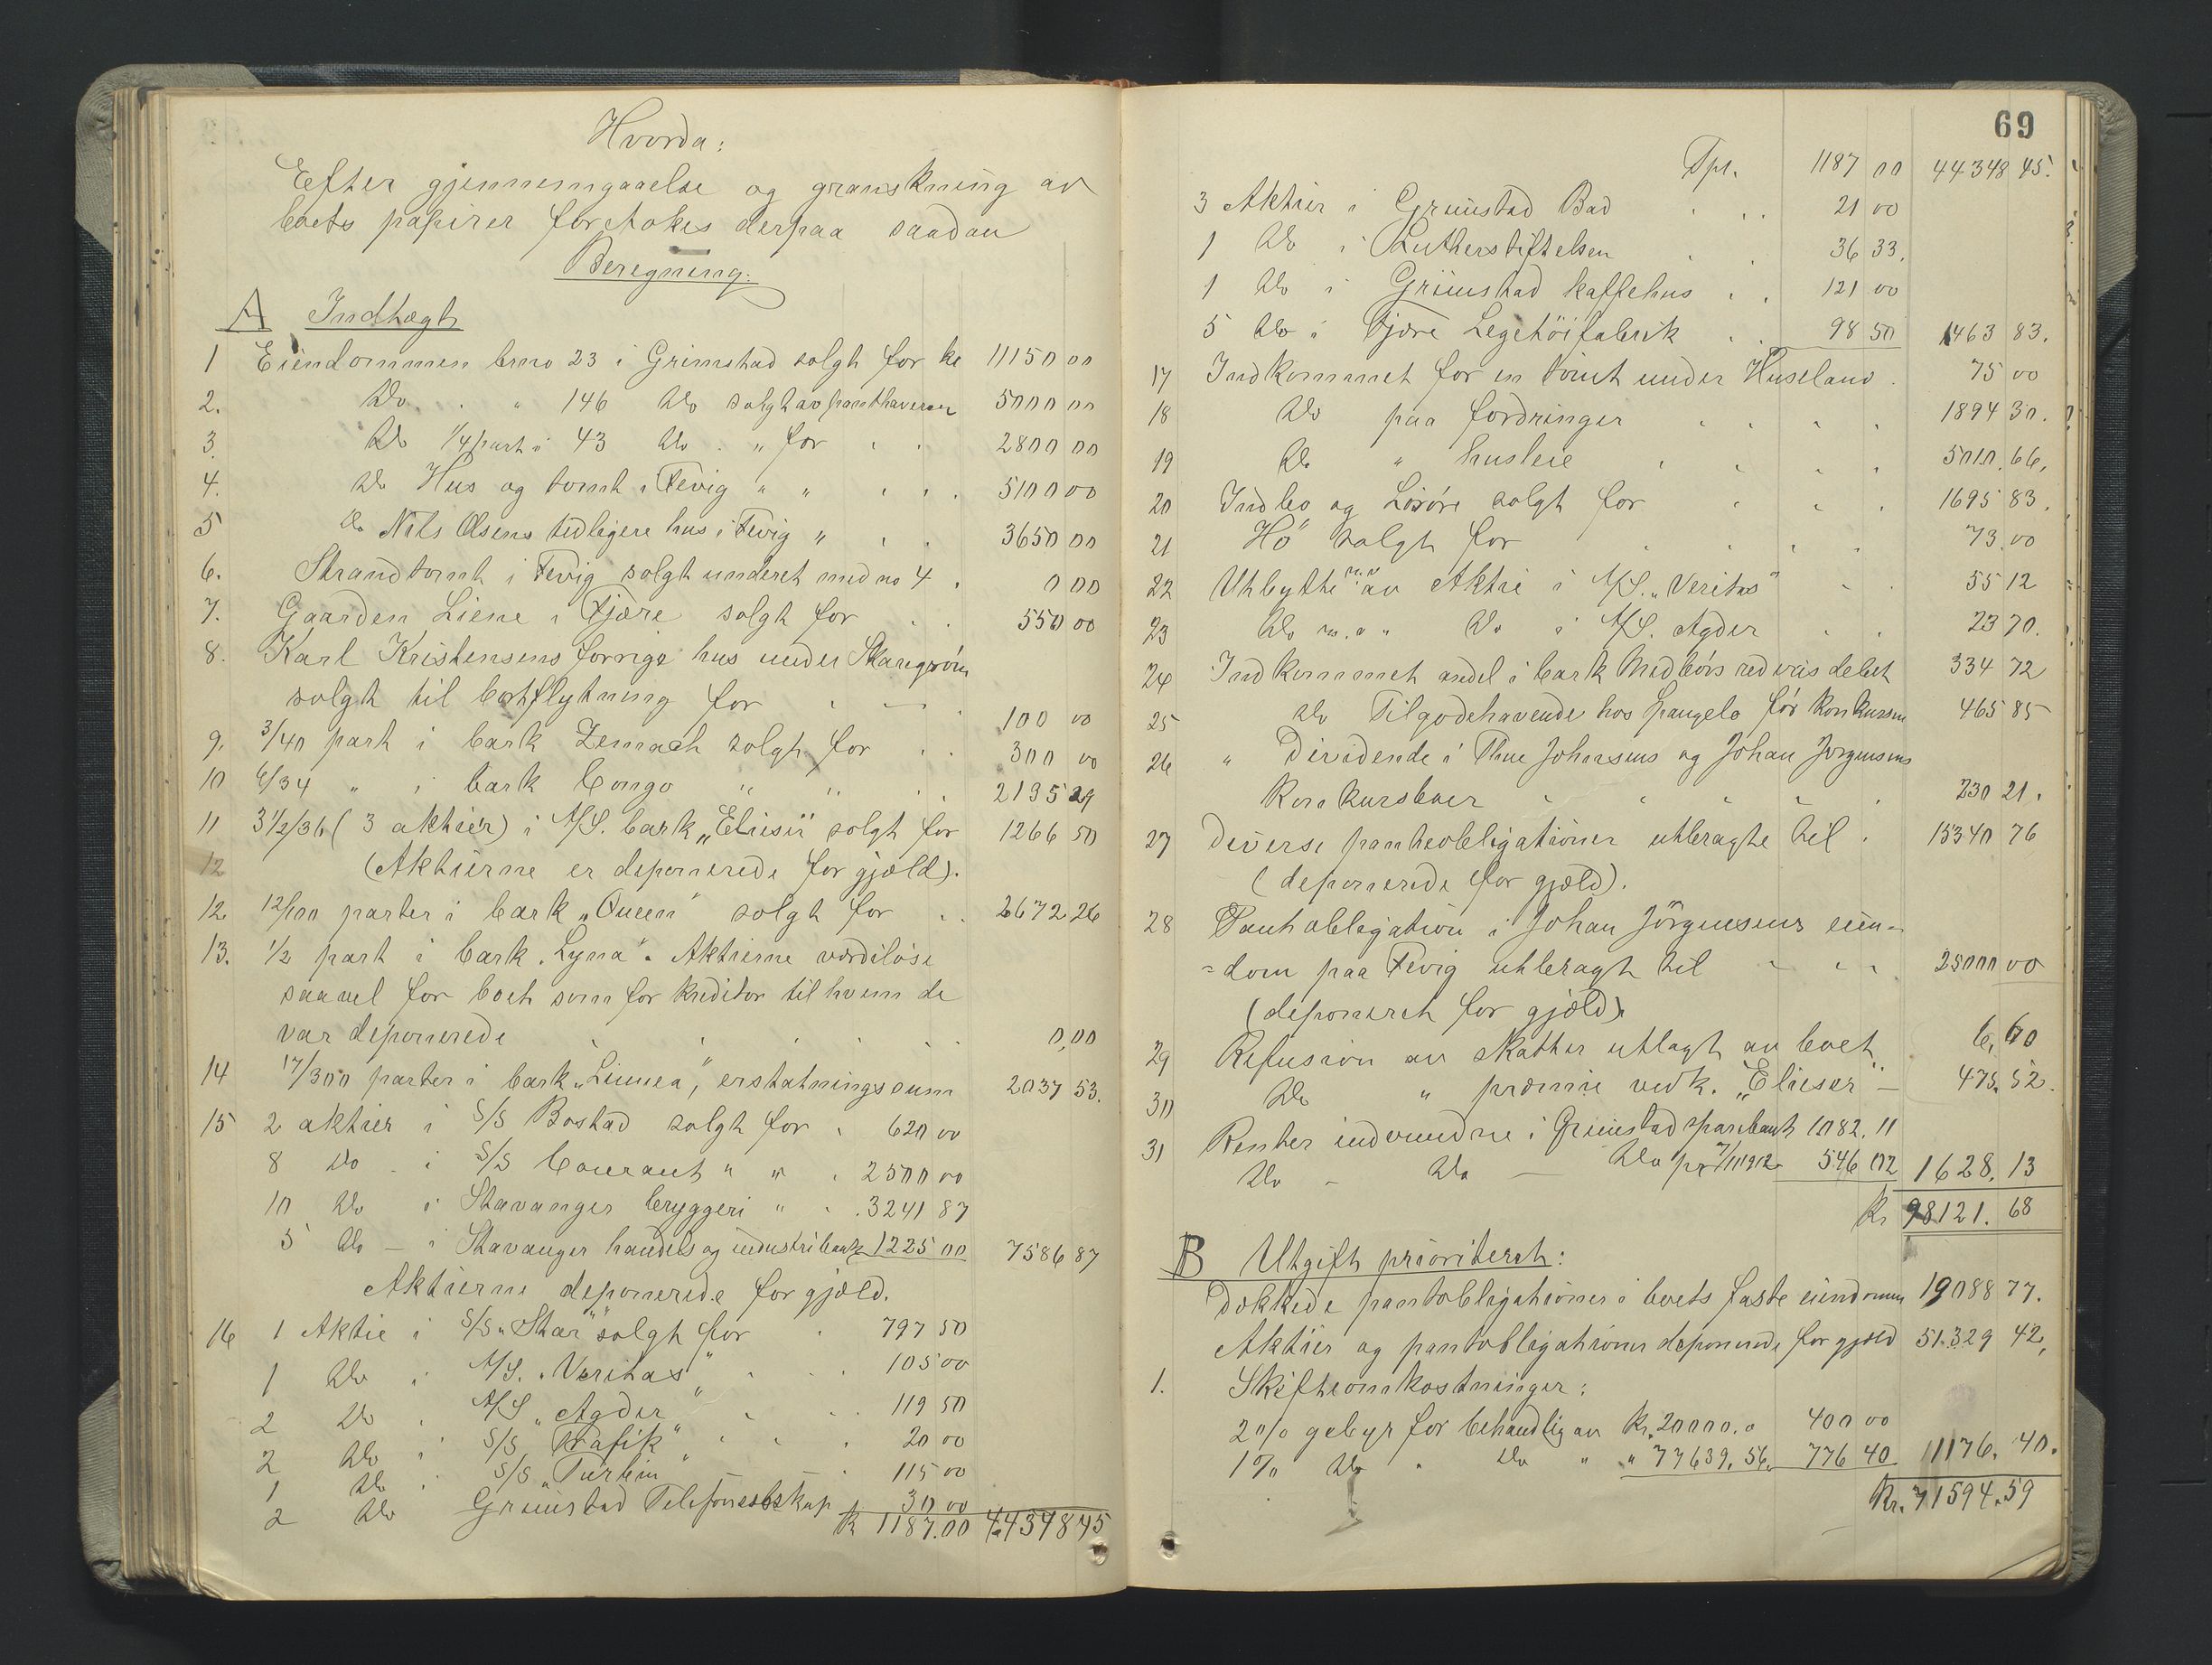 Hvorda:
Efter gjennemgaaelse og granskning av
boets papirer foretokes derpaa saadan
Beregning:
A Indtægt
1 Eiendommen brno 23 i Grimstad solgt for kr 11150 00
2. Do. " 146 Do solgt av panthaveren 5000 00
3. Do 1/4 part i 43 Do " for 2800 00
4. Do Hus og tomt i Fevig " " 5100 00
5 Do Nils Olsens tidligere hus i Fevig " 3650 00
6. Strandtomt i Fevig solgt underet med no 4. 0 00
7. Gaarden Liene i Fjære solgt for 550 00
8. Karl Kristensens forrige hus under
solgt til bortflytning for 100 00
9. 3/40 part i bark Zemach solgt for 300 00
10 6/34 " i bark Congo " " 2135 29
11 3 1/2/36 (3 aktier) i A/S. bark "Eliesir" solgt for 1266 50
12 (Aktierne er deponerede for gjæld).
12. 12/100 parter i bark "Queen" solgt for 2672 26
13. 1/2 part i bark "Lyna". Aktierne værdiløse
saavel for boet som for kreditor til hvem de
var deponerede 0,00
14 17/300 parter i bark "Linnea", erstatningssum 2037 53.
15 2 aktier i S/S Bostad solgt for 620 00
8 Do i S/S Courant " " 2500 00
10 Do i Stavanger bryggeri " 3241 87
5 Do - i Stavanger handels og industribank 1225 00 7586 87
Aktierne deponerede for gjæld.
16 1 Aktie i S/S "Star" solgt for 797 50
1 Do i A/S. "Veritas" 105 00
2 Do. A/S "Agder" 119 50
2 Do i S/S "Trafik" 20 00
1 Do. S/S "Turbin" 115 00
2 Do Grimstad Telefonselskap 30 00
K 1187.00 44348 45
69
Tpt. 1187 00 44348 45.
3 Aktier i Grimstad Bad 21 00
1 Do i Lutherstiftelsen 36 33.
1 Do i Grimstad kaffehus 121 00
5 Do i Fjære Legetöifabrik 98 50 1463 83.
17 Indkommet for en tomt under Huseland. 75 00
18 Do paa fordringer 1894 30.
19 Do " husleie 5010.66,
20 Indbo og Lösöre solgt for 1695 83.
21 Hö solgt for 73.00
22 Utbytte m.v av Aktie i A/S. "Veritas" 55 12
23 Do m.v " Do i A/S. Agder 23 70.
24 Indkommet andel i bark Medbörs rederis debet 334 72
25 Do Tilgodehavende hos Spangelo för konkursen 465 85
26 " Dividende i Thue Johnsens og Johan Jörgensens
Konkursboer 230 21.
27 Diverse pantheobligationer utbragte til 15340 76
(deponerede for gjæld).
28 Pantobligation i Johan Jörgensens eien-
=dom paa Fevig utbragt til 25000 00
(deponeret for gjæld).
29 Refusion av skatter utlagt av boet 6,60
30 Do " præmie vedk. "Elieser" - 475.52.
31 Renter indvundne i Grimstad sparebank 1082.11
Do - Do - Do pr 7/11 1912 546 02 1628.13
Kr 98121.68
B Utgift prioriteret:
Dækkede pantobligationer i boets faste eiendomme 19088 77.
Aktier og pantobligationer deponerede for gjæld 51.329 42,
1. Skifteomkostninger:
2% gebyr for behandlig av Kr. 20000.0 400 00
1% Do " Do " " 77639.56. 776 40 1176.40.
Kr. 71594.59